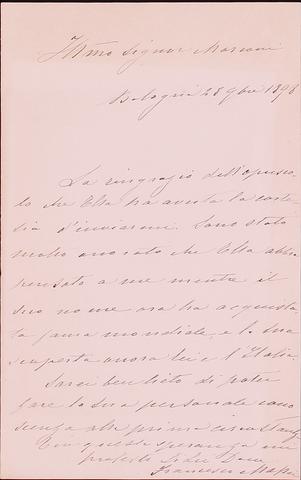 Ill.mo Signor Marconi
Bologna 28 9bre 1896
La ringrazio dell'opusco-
lo che Ella ha avuto la corte-
sia d'inviarmi. Sono stato
molto onorato che Ella abbia
pensato a me mentre il
suo nome ora ha acquista-
ta fama mondiale, e la sua
scoperta onora lei e l'Italia.
Sarei ben lieto di poter
fare la sua personale cono
scenza alla prima circostanza
Con questa speranza mi
protesto di Lei Dev.
Francesco